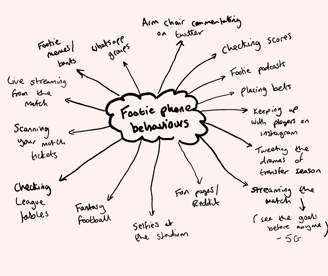 Arm chair commentating
on twitter
Footie
memes/
bants
whatsapp
groups
Checking scores
Footie podcasts
Live streaming
from the
match
placing bets
Footie phone
behaviours
Keeping up
with players on
instagram
Scanning
your match
tickets
Tweeting the
dramas of
transfer season
Checking
League
tables
Fantasy
football
Selfies at
the stadium
Fan pages/
Reddit
streaming the
match
(see the goals
before anyone)
- 5G